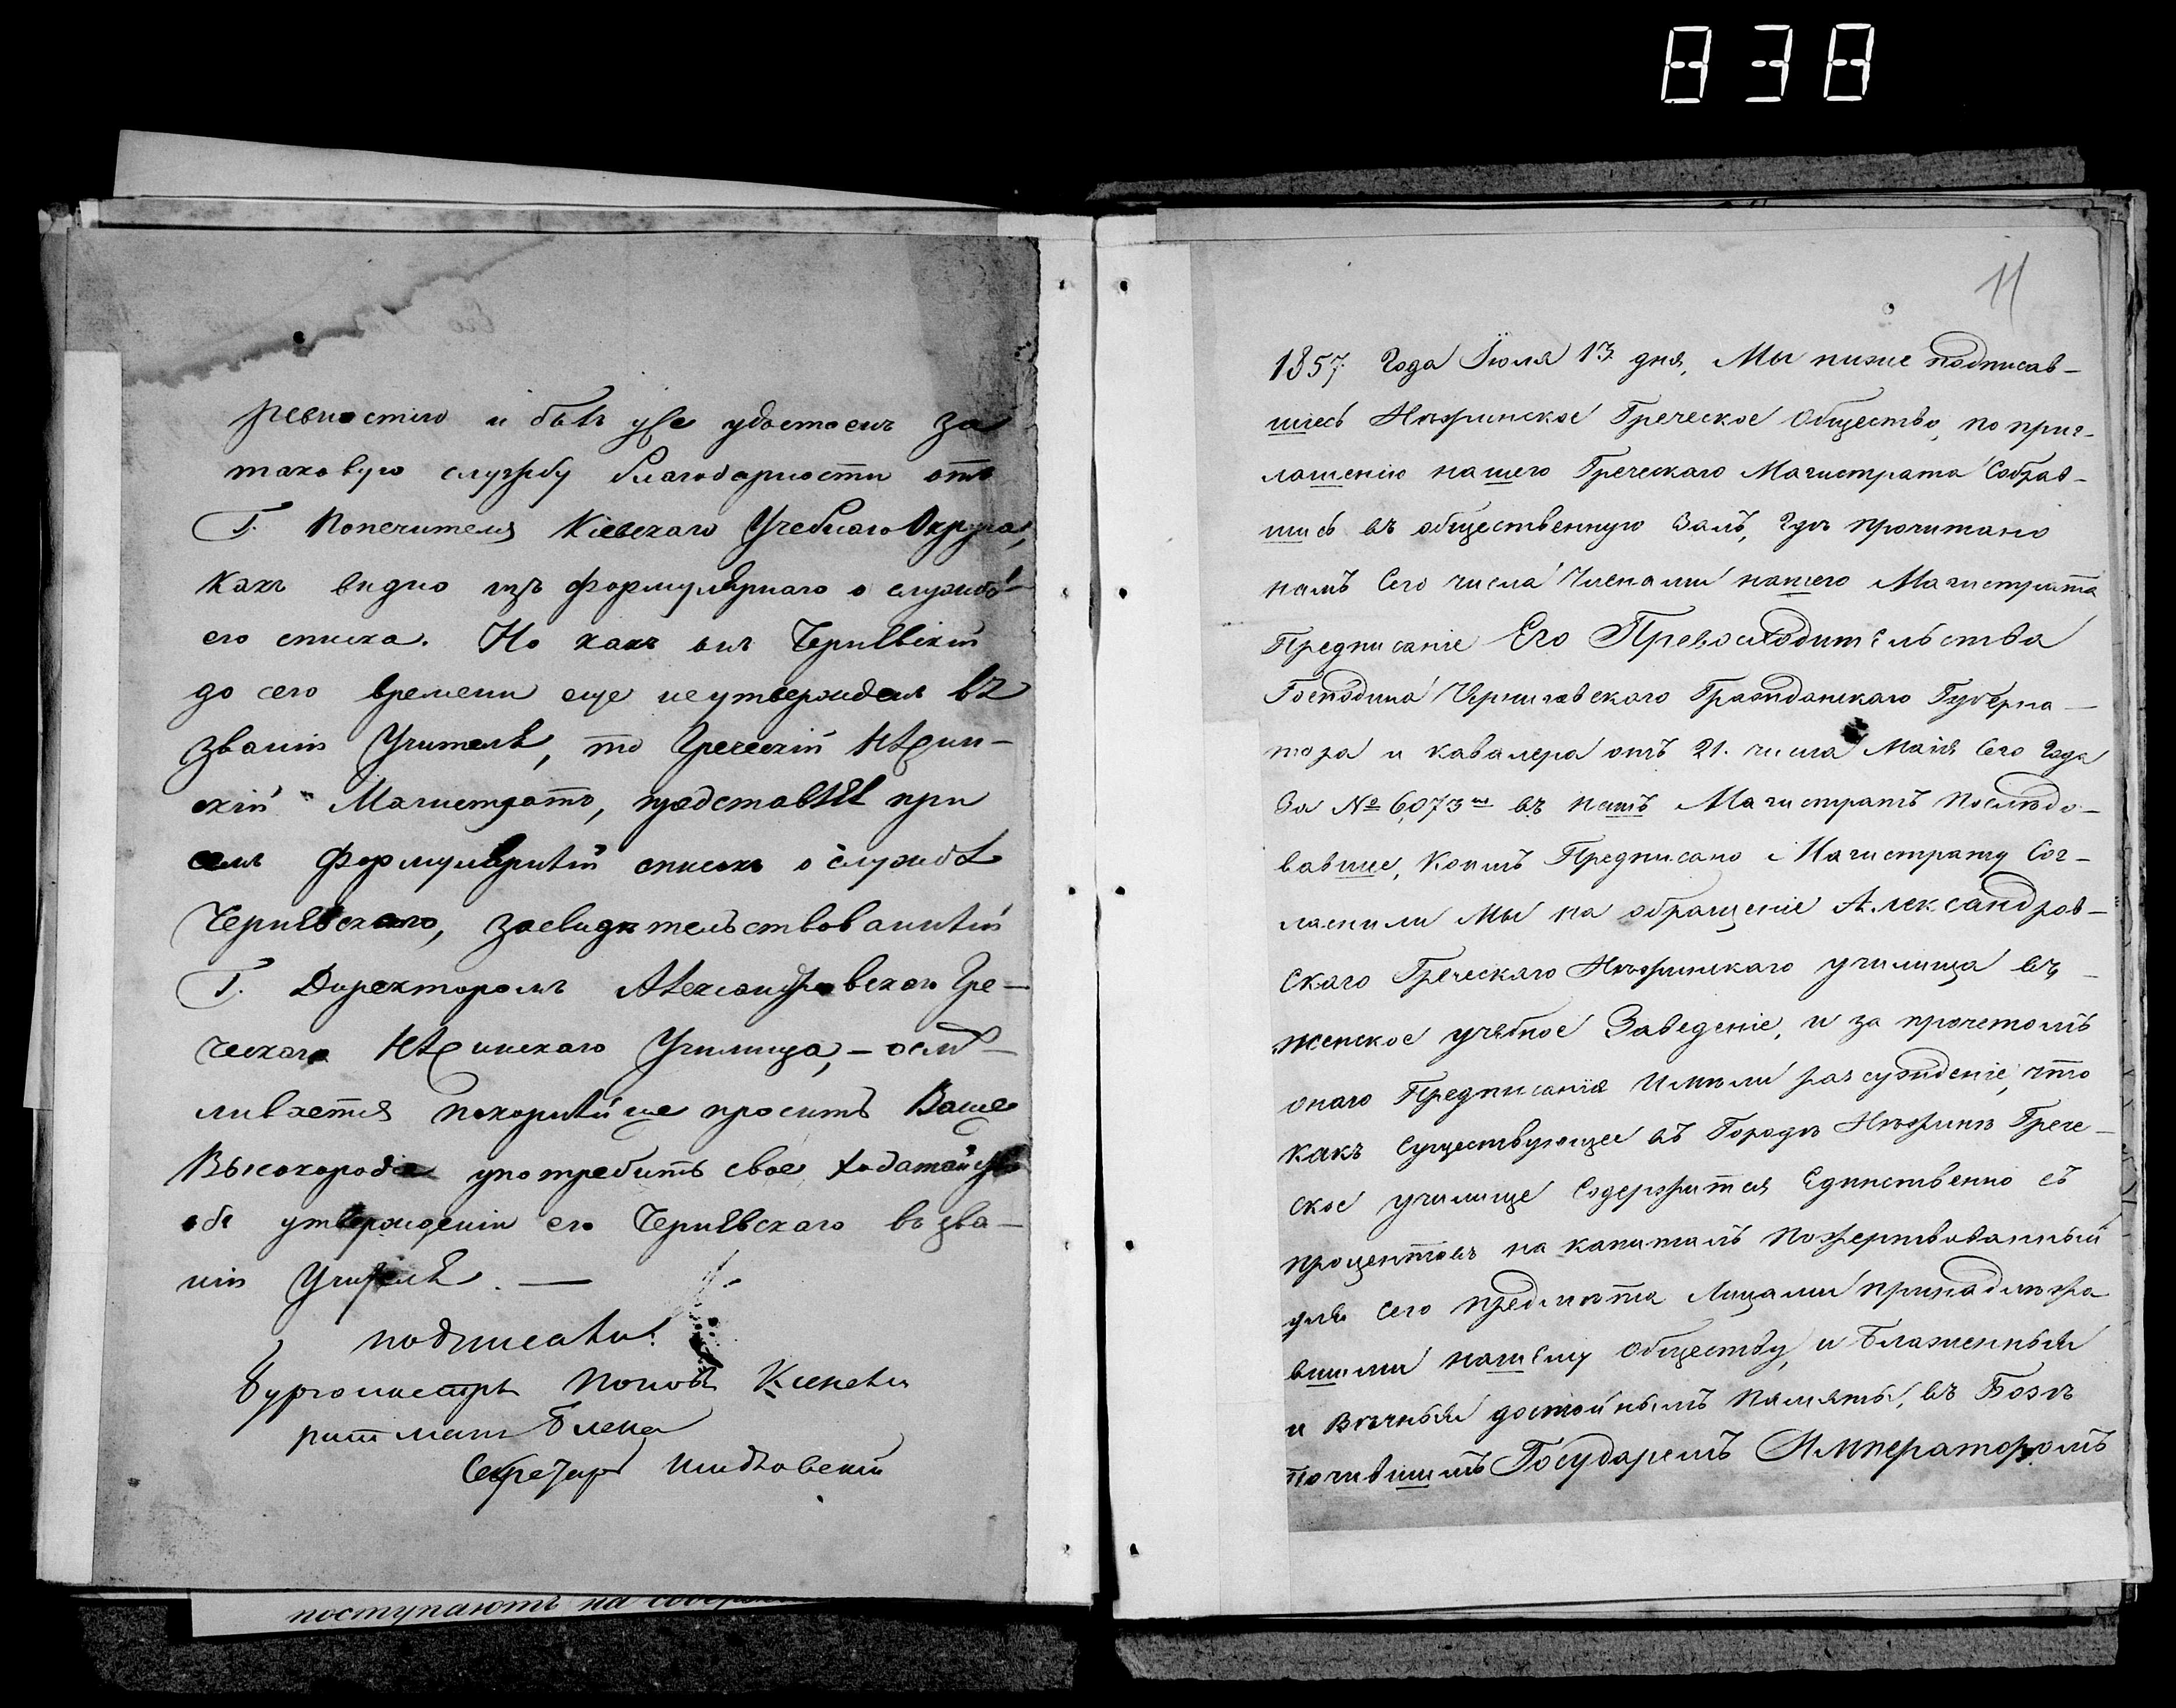 838
ревностію и былъ уже удостоенъ за
таковую службу благодарности отъ
Г. Попечителя Кіевскаго Учебнаго Округа,
какъ видно изъ формулярнаго о службѣ
его списка. Но какъ онъ Чернявскій
до сего времени еще не утвержденъ въ
званіи Учителя, то Греческій Нѣжин-
скій Магистратъ, представляя при
семъ формулярный списокъ о службѣ
Чернявскаго, засвидѣтельствованный
Г. Директоромъ Александровскаго Гре-
ческаго Нѣжинскаго Училища, - осмѣ-
ливается покорнѣйше просить Ваше
Высокородіе употребить свое ходатайство
объ утвержденіи его Чернявскаго въ зва-
ніи Учителя. —
подписали:
Бургомистръ Поповъ
Секретарь
поступаютъ на
11
1857 Года Іюля 13 дня, Мы ниже подписав-
шіесь Нѣжинское Греческое Общество, по приг-
лашенію нашего Греческаго Магистрата Собрав-
шись въ общественную Залъ, гдѣ прочитано
намъ Сего числа Членами нашего Магистрата
Предписаніе Его Превосходительства
Господина Черниговскаго Гражданскаго Губерна-
тора и кавалера отъ 21. числа Маія Сего Года
За № 6,073м въ нашъ Магистратъ Послѣдо-
вавшее, Коимъ Предписано Магистрату Сог-
ласили Мы на обращеніе Александров-
скаго Греческаго Нѣжинскаго училища въ
женское учебное Заведеніе, и за прочетомъ
онаго Предписанія Имѣли разсужденіе, что
какъ Существующее въ Городѣ Нѣжинѣ Грече-
ское училище Содержится Единственно съ
процентовъ на капиталъ Пожертвованный
для сего предмѣта Лицами принадлѣжа
вшими нашему Обществу, и Блаженныя
и Вѣчныя достойнымъ Памяты, въ Бозѣ
почившимъ Государемъ Императоромъ